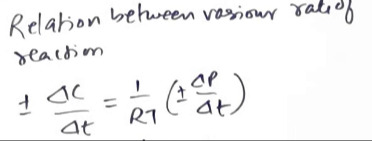 Relation between various rate of
reaction
± ΔC/Δt = 1/RT (± ΔP/Δt)